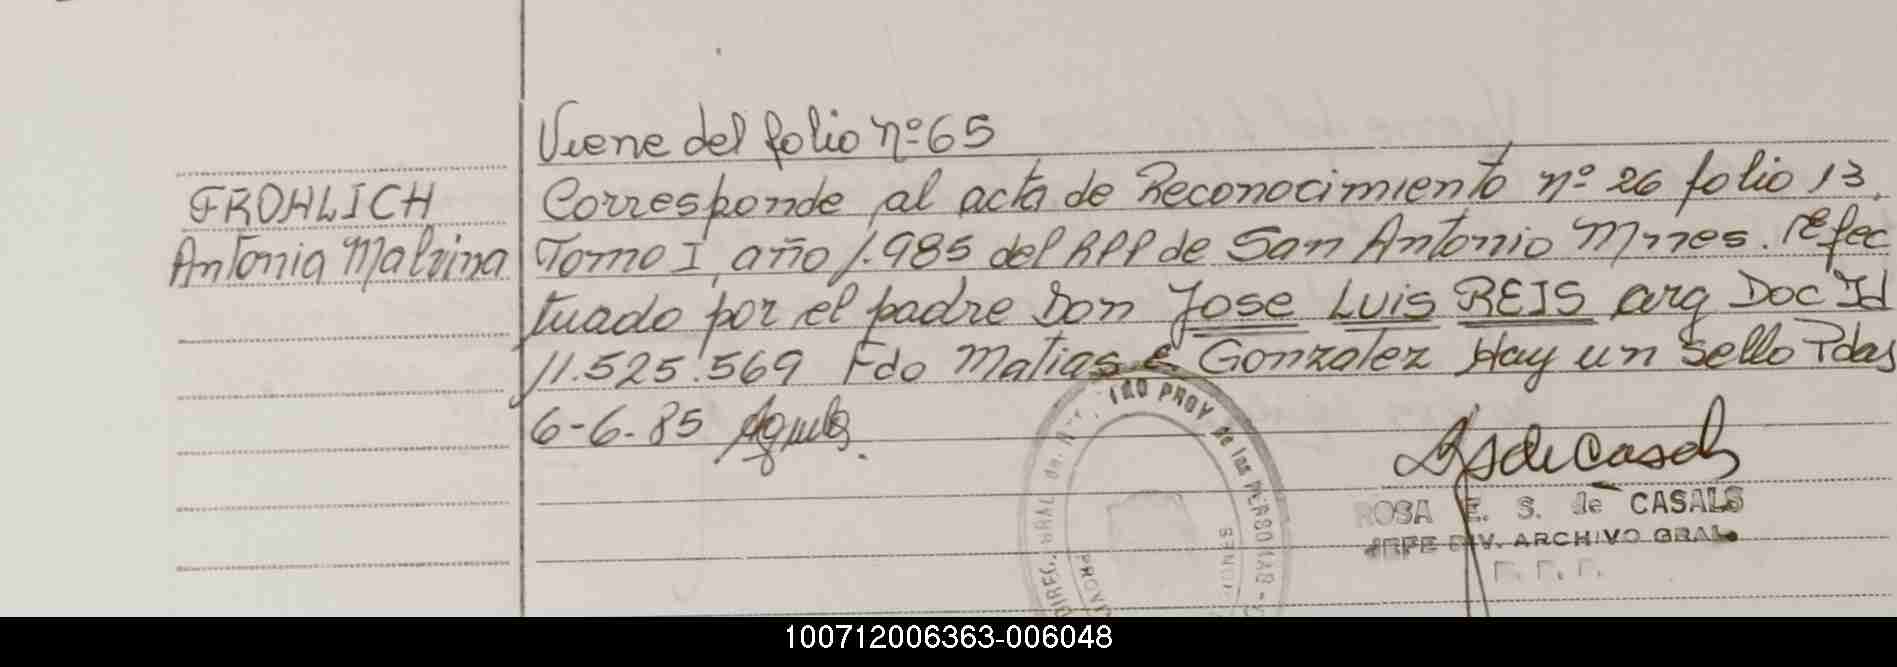 Viene del folio nº 65
FROHLICH
Antonia Malvina
Corresponde al acta de Reconocimiento nº 26 folio 13.
Tomo I, año 1.985 del RPP de San Antonio Mnes. Efec
tuado por el padre Don Jose Luis REIS arg Doc Id
11.525.569 Fdo Matias E Gonzalez Hay un sello Pdas
6-6-85
ROSA E. S. de CASALS
JEFE DIV. ARCHIVO GRAL.
DIREC. GRAL de PROV de las PERSONAS
100712006363-006048